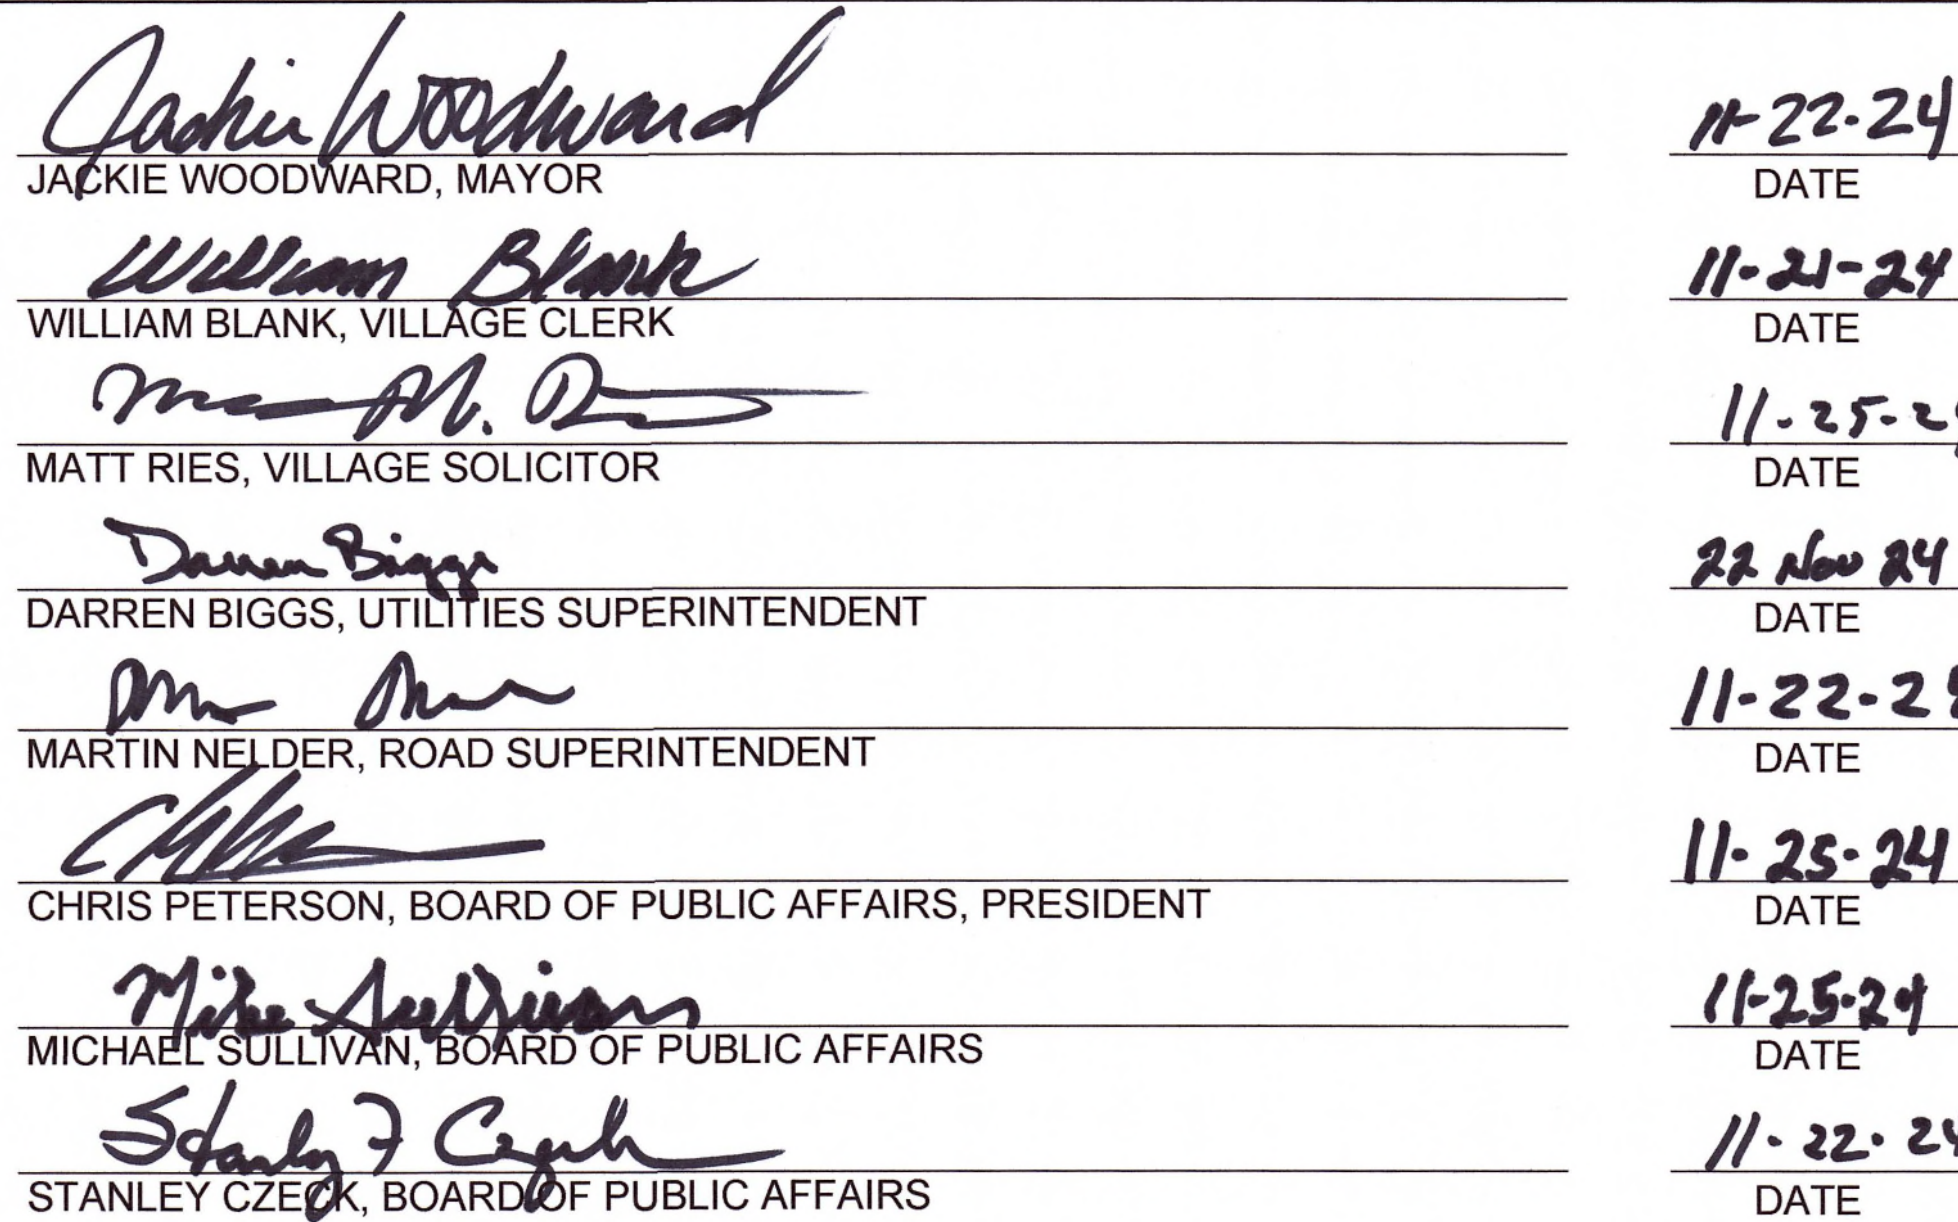 Jackie Woodward 11-22-24
JACKIE WOODWARD, MAYOR DATE
William Blank 11-21-24
WILLIAM BLANK, VILLAGE CLERK DATE
M. 11-25-2
MATT RIES, VILLAGE SOLICITOR DATE
Darren Biggs 22 Nov 24
DARREN BIGGS, UTILITIES SUPERINTENDENT DATE
11-22-2
MARTIN NELDER, ROAD SUPERINTENDENT DATE
11-25-24
CHRIS PETERSON, BOARD OF PUBLIC AFFAIRS, PRESIDENT DATE
Mike Sullivan 11-25-24
MICHAEL SULLIVAN, BOARD OF PUBLIC AFFAIRS DATE
Stanley F Czeck 11-22-24
STANLEY CZECK, BOARD OF PUBLIC AFFAIRS DATE